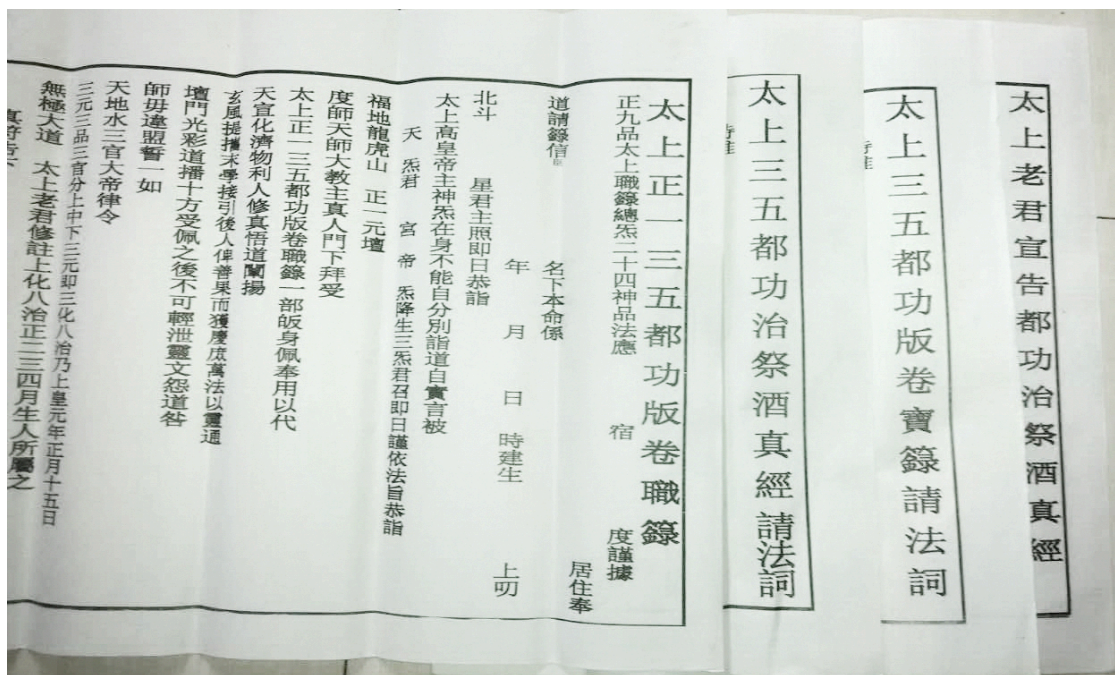 太上老君宣告都功治祭酒真經
太上三五都功版卷寶籙請法詞
太上三五都功治祭酒真經請法詞
太上正一三五都功版卷職籙
正九品太上職籙總炁二十四神品法應 宿 度謹據
居住奉
道請籙信 名下本命係
年 月 日 時建生 上叨
北斗 星君主照即日恭詣
太上高皇帝主神炁在身不能自分別詣道自實言被
天 炁君 宮 帝 炁降生三炁君召即日謹依法旨恭詣
福地龍虎山 正一元壇
度師天師大教主真人門下拜受
太上正一三五都功版卷職籙一部皈身佩奉用以代
天宣化濟物利人修真悟道闡揚
玄風提攜末學接引後人俾善果而獲慶庶萬法以靈通
壇門光彩道播十方受佩之後不可輕泄靈文怨道咎
師毋違盟誓一如
天地水三官大帝律令
三元三品三官分上中下三元即三化八治乃上皇元年正月十五日
無極大道 太上老君修註上化八治正二三四月生人所屬之